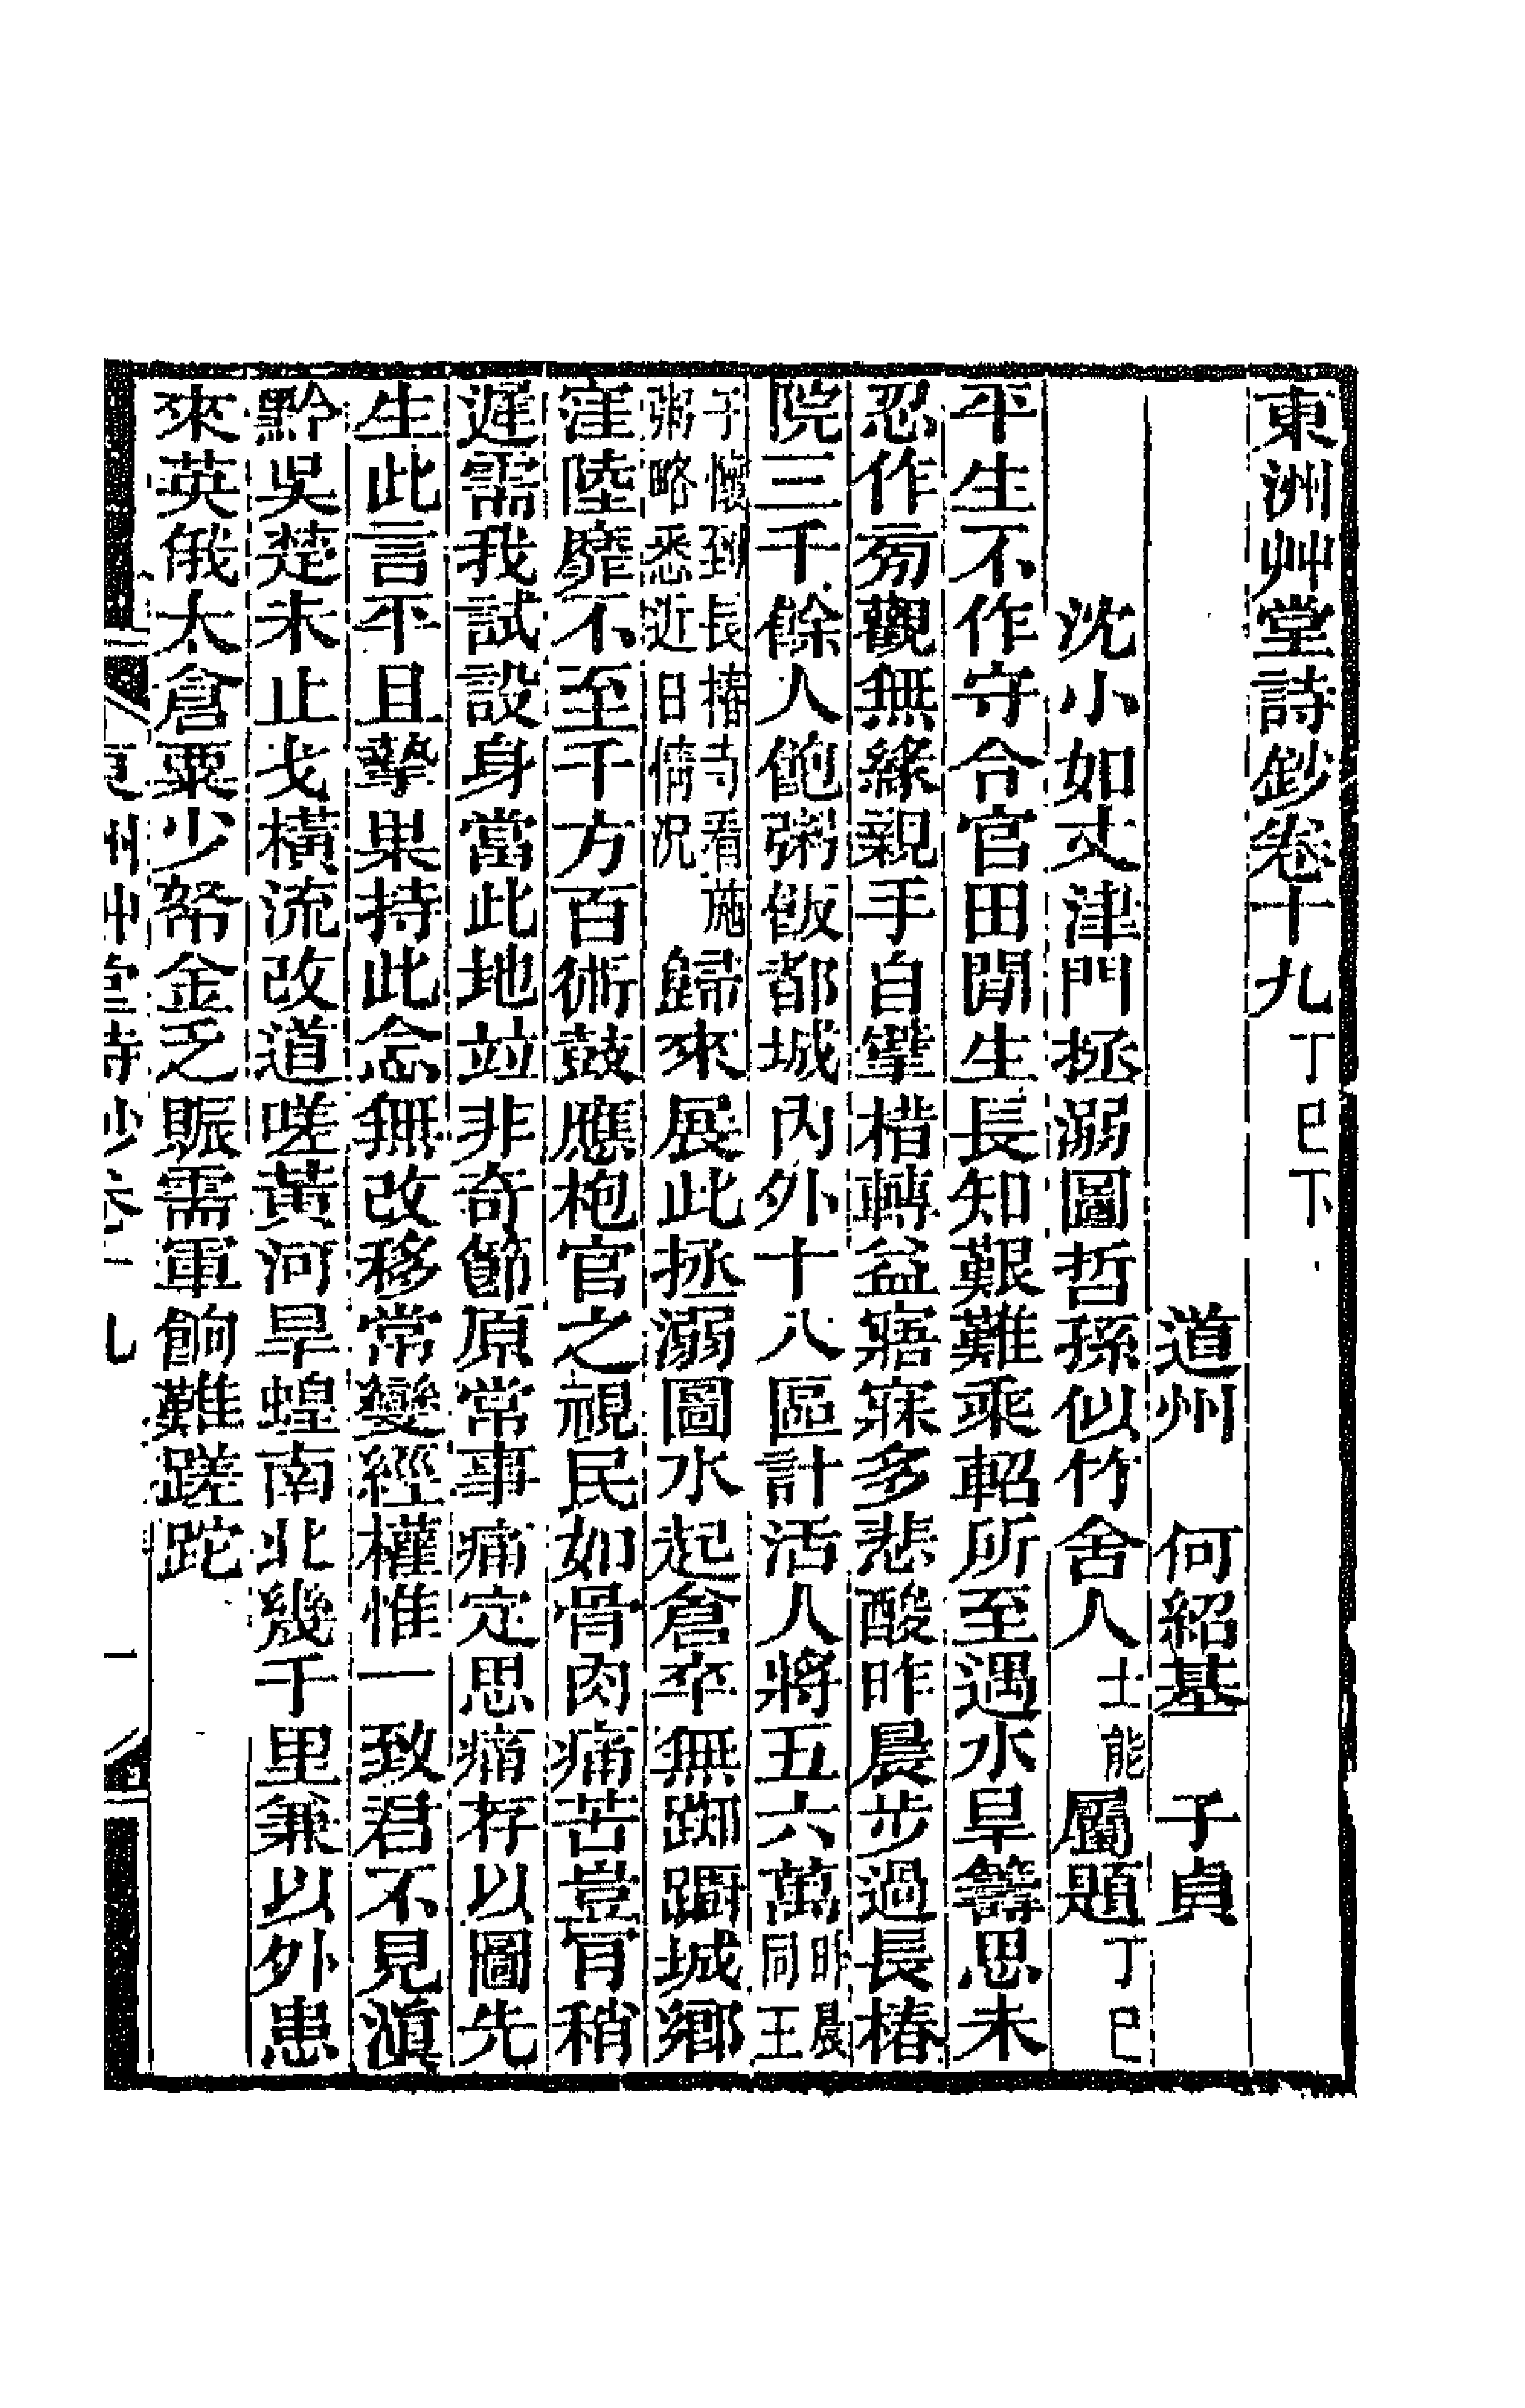 東洲艸堂詩鈔卷十九丁巳下
道州　何紹基　子貞
沈小如丈津門拯溺圖哲孫似竹舍人士能屬題丁巳
平生不作守令官田閒生長知艱難乘軺所至遇水旱籌思未
忍作㫄觀無緣親手自擘措轉益寤寐多悲酸昨晨步過長椿
院三千餘人飽粥飯都城內外十八區計活人將五六萬昨晨同王
子懷到長椿寺看施粥略悉近日情況歸來展此拯溺圖水起倉卒無踟躕城鄉
窪陸靡不至千方百術鼓應枹官之視民如骨肉痛苦豈肎稍
遲需我試設身當此地竝非奇節原常事痛定思痛存以圖先
生此言平且摯果持此念無改移常變經權惟一致君不見滇
黔吳楚未止戈橫流改道嗟黃河旱蝗南北幾千里兼以外患
來英俄太倉粟少帑金乏賑需軍餉難蹉跎
東洲艸堂詩鈔卷十九　一